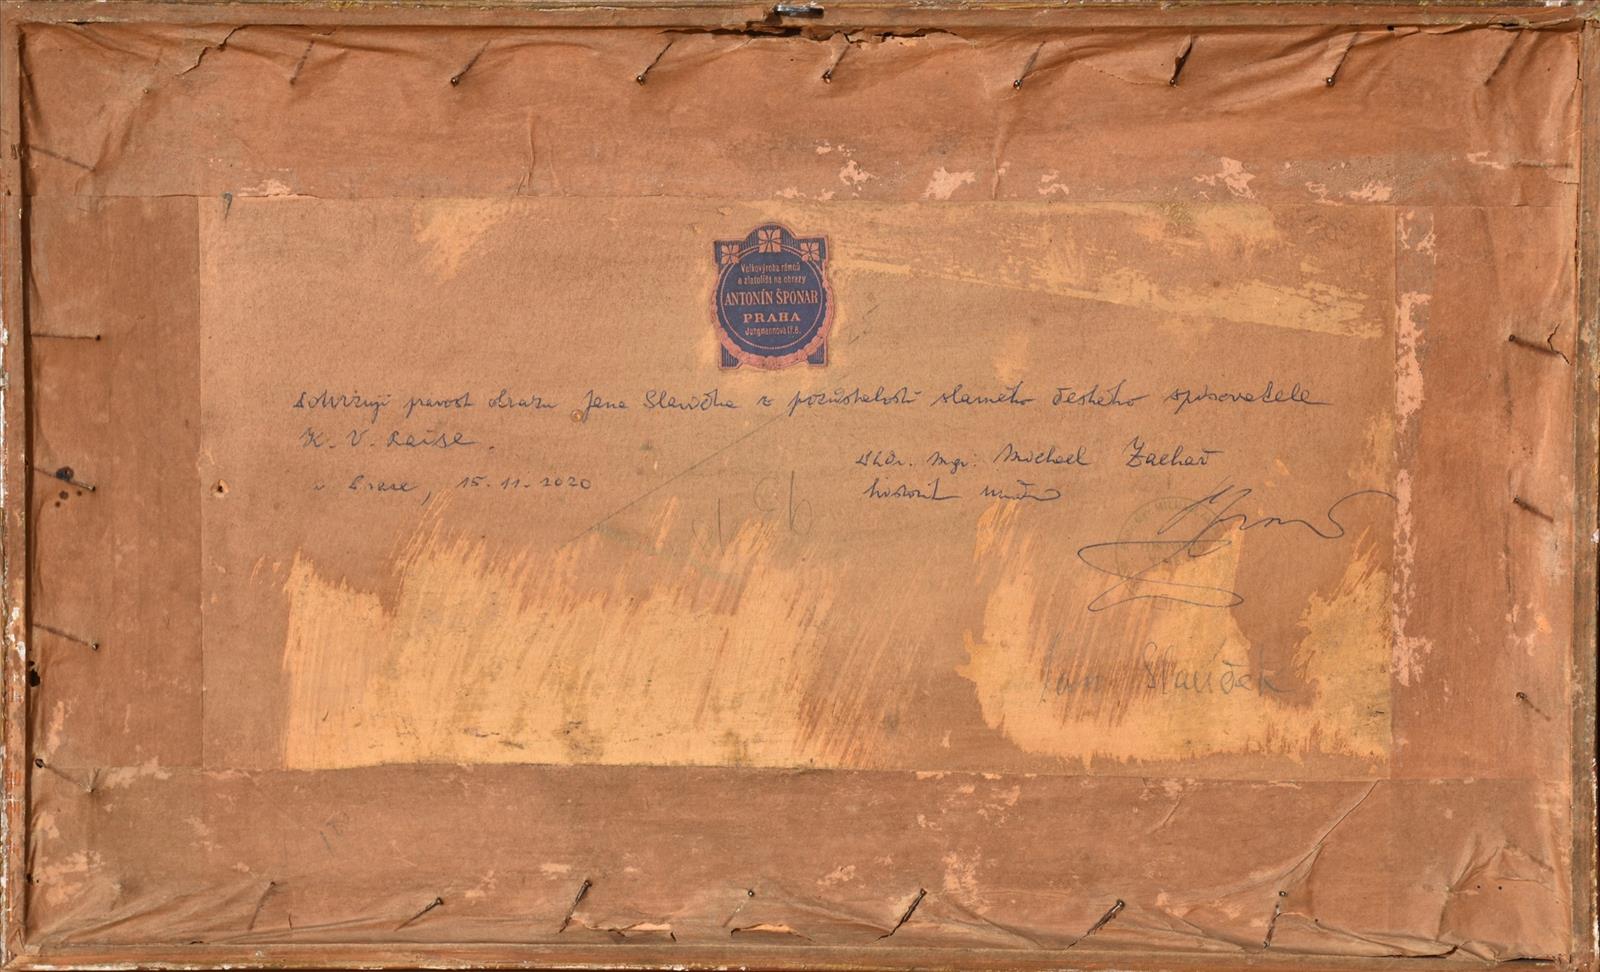 Velkovýroba rámců
a zlatolišt na obrazy
ANTONÍN ŠPONAR
PRAHA
Jungmannova tř. 8.
Potvrzuji pravost obrazu Jana Slavíčka z pozůstalosti slavného českého spisovatele
K. V. Raise.
v Praze, 15.11.2020
PhDr. Mgr. Michael Zachař
historik umění
Jan Slavíček